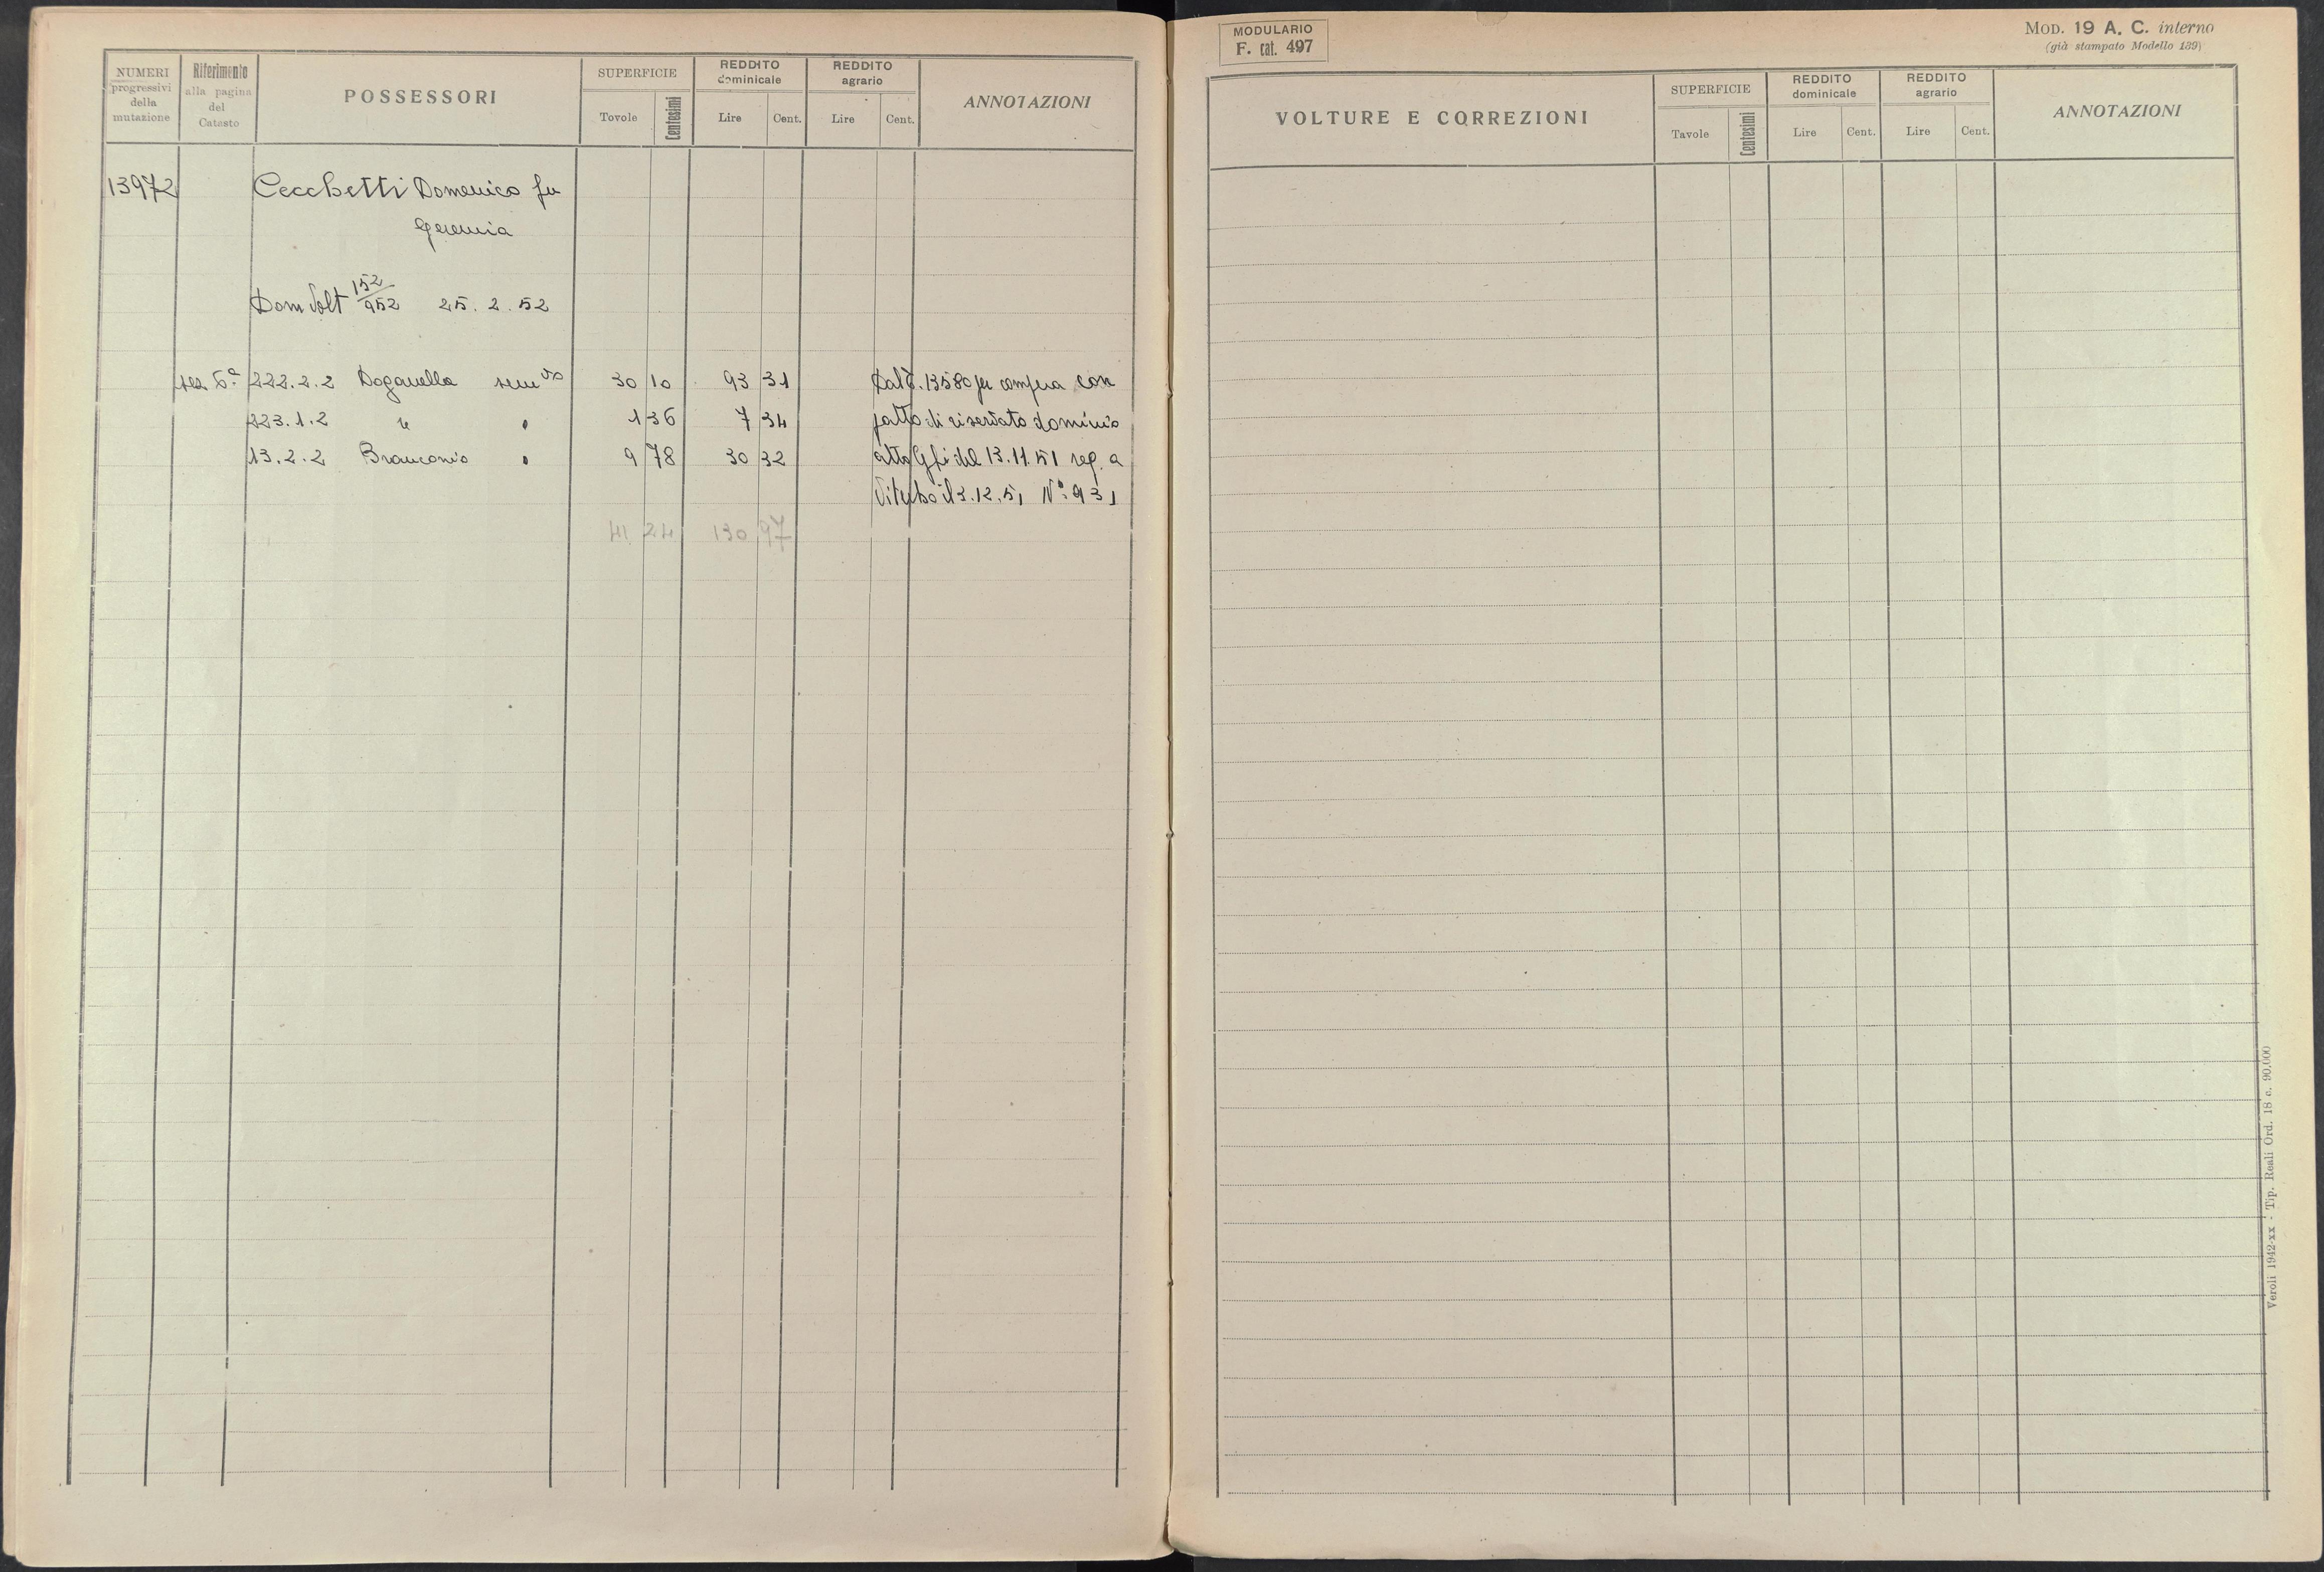 NUMERI progressivi della mutazione
Riferimento alla pagina del Catasto
POSSESSORI
SUPERFICIE
Tovole
Centesimi
REDDITO dominicale
Lire
Cent.
REDDITO agrario
Lire
Cent.
ANNOTAZIONI
13972 Cecchetti Domenico fu
Geremia
Dom Volt 152/952 25.2.52
sez. 6ª 222.2.2 Doganella semvo 30 10 93 31 Dal 13580 per compera con
223.1.2 " " 1 36 7 34 patto di riservato dominio
13.2.2 Branconio " 9 78 30 32 atto del 13.11.51 reg. a
Viterbo il 3.12.51 N° 931
41 24 130 97
MODULARIO
F. cat. 497
MOD. 19 A. C. interno
(già stampato Modello 139)
VOLTURE E CORREZIONI
SUPERFICIE
Tavole
Centesimi
REDDITO dominicale
Lire
Cent.
REDDITO agrario
Lire
Cent.
ANNOTAZIONI
Veroli 1942-xx - Tip. Reali Ord. 18 c. 90.000